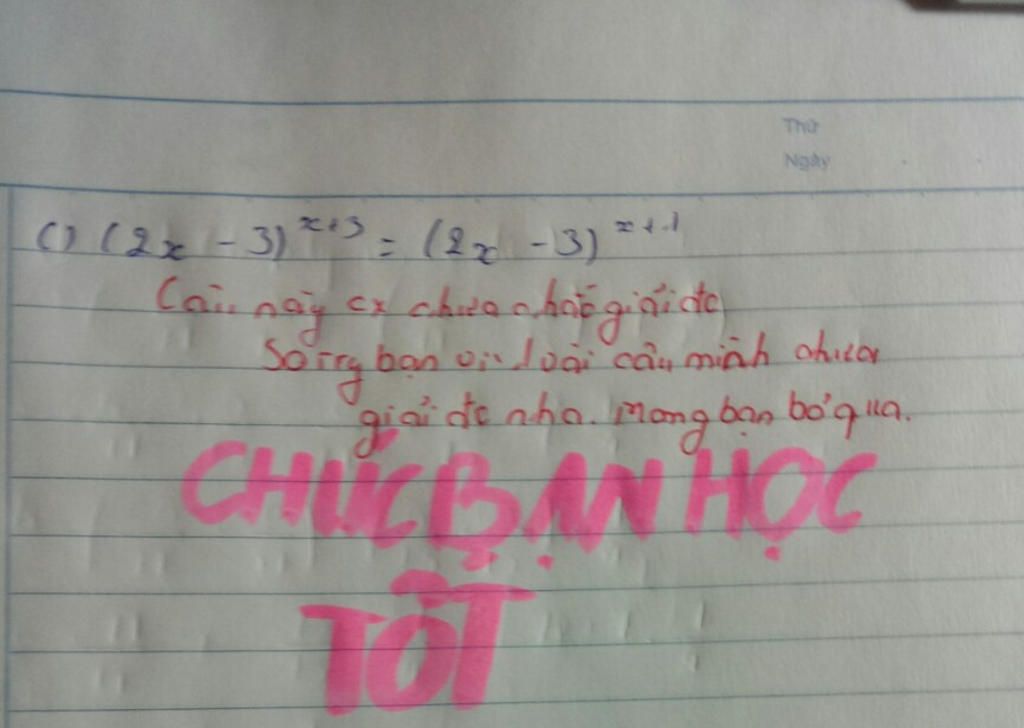 Thứ
Ngày
c) (2x - 3)^{x+3} = (2x - 3)^{x+1}
Câu này cx chưa chắc giải đc
Sorry bạn vì loài câu mình chưa
giải đc nha. Mong bạn bỏ qua.
CHÚC BẠN HỌC
TỐT